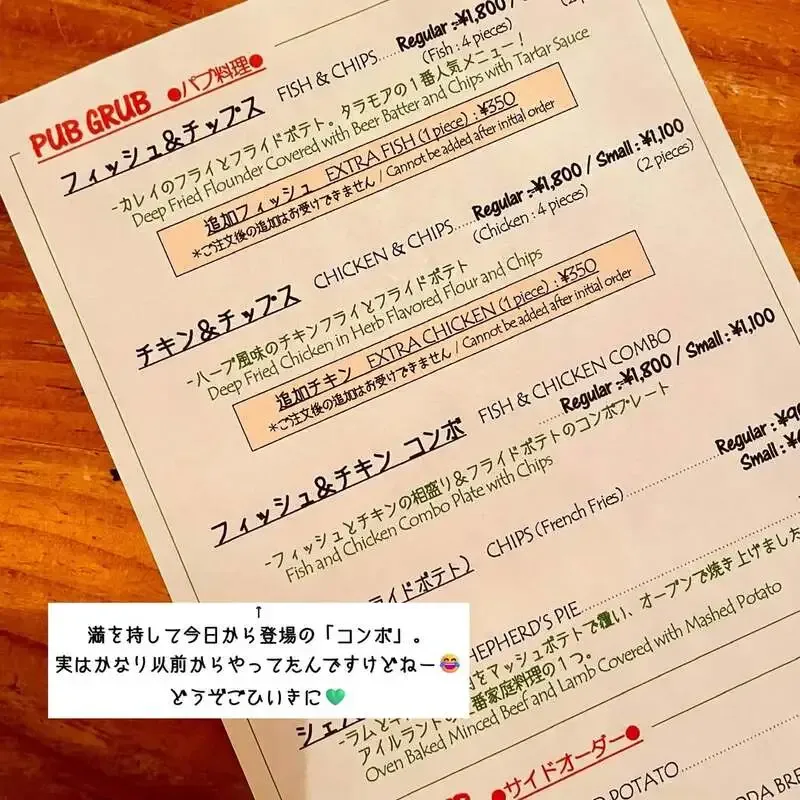 PUB GRUB ●パブ料理●
フィッシュ&チップス FISH & CHIPS......Regular :¥1,800 /
(Fish : 4 pieces)
-カレイのフライとフライドポテト。タラモアの1番人気メニュー!
Deep Fried Flounder Covered with Beer Batter and Chips with Tartar Sauce
追加フィッシュ EXTRA FISH (1 piece) : ¥350
*ご注文後の追加はお受けできません / Cannot be added after initial order
チキン&チップス CHICKEN & CHIPS......Regular :¥1,800 / Small : ¥1,100
(Chicken : 4 pieces) (2 pieces)
-ハーブ風味のチキンフライとフライドポテト
Deep Fried Chicken in Herb Flavored Flour and Chips
追加チキン EXTRA CHICKEN (1 piece) : ¥350
*ご注文後の追加はお受けできません / Cannot be added after initial order
フィッシュ&チキン コンボ FISH & CHICKEN COMBO
Regular :¥1,800 / Small : ¥1,100
-フィッシュとチキンの相盛り&フライドポテトのコンボプレート
Fish and Chicken Combo Plate with Chips
ライドポテト) CHIPS (French Fries) Regular :
Small :
SHEPHERD'S PIE
をマッシュポテトで覆い、オーブンで焼き上げました
アイルランドの 番家庭料理の1つ。
Oven Baked Minced Beef and Lamb Covered with Mashed Potato
●サイドオーダー●
POTATO
↑
満を持して今日から登場の「コンボ」。
実はかなり以前からやってたんですけどねー😂
どうぞごひいきに💚